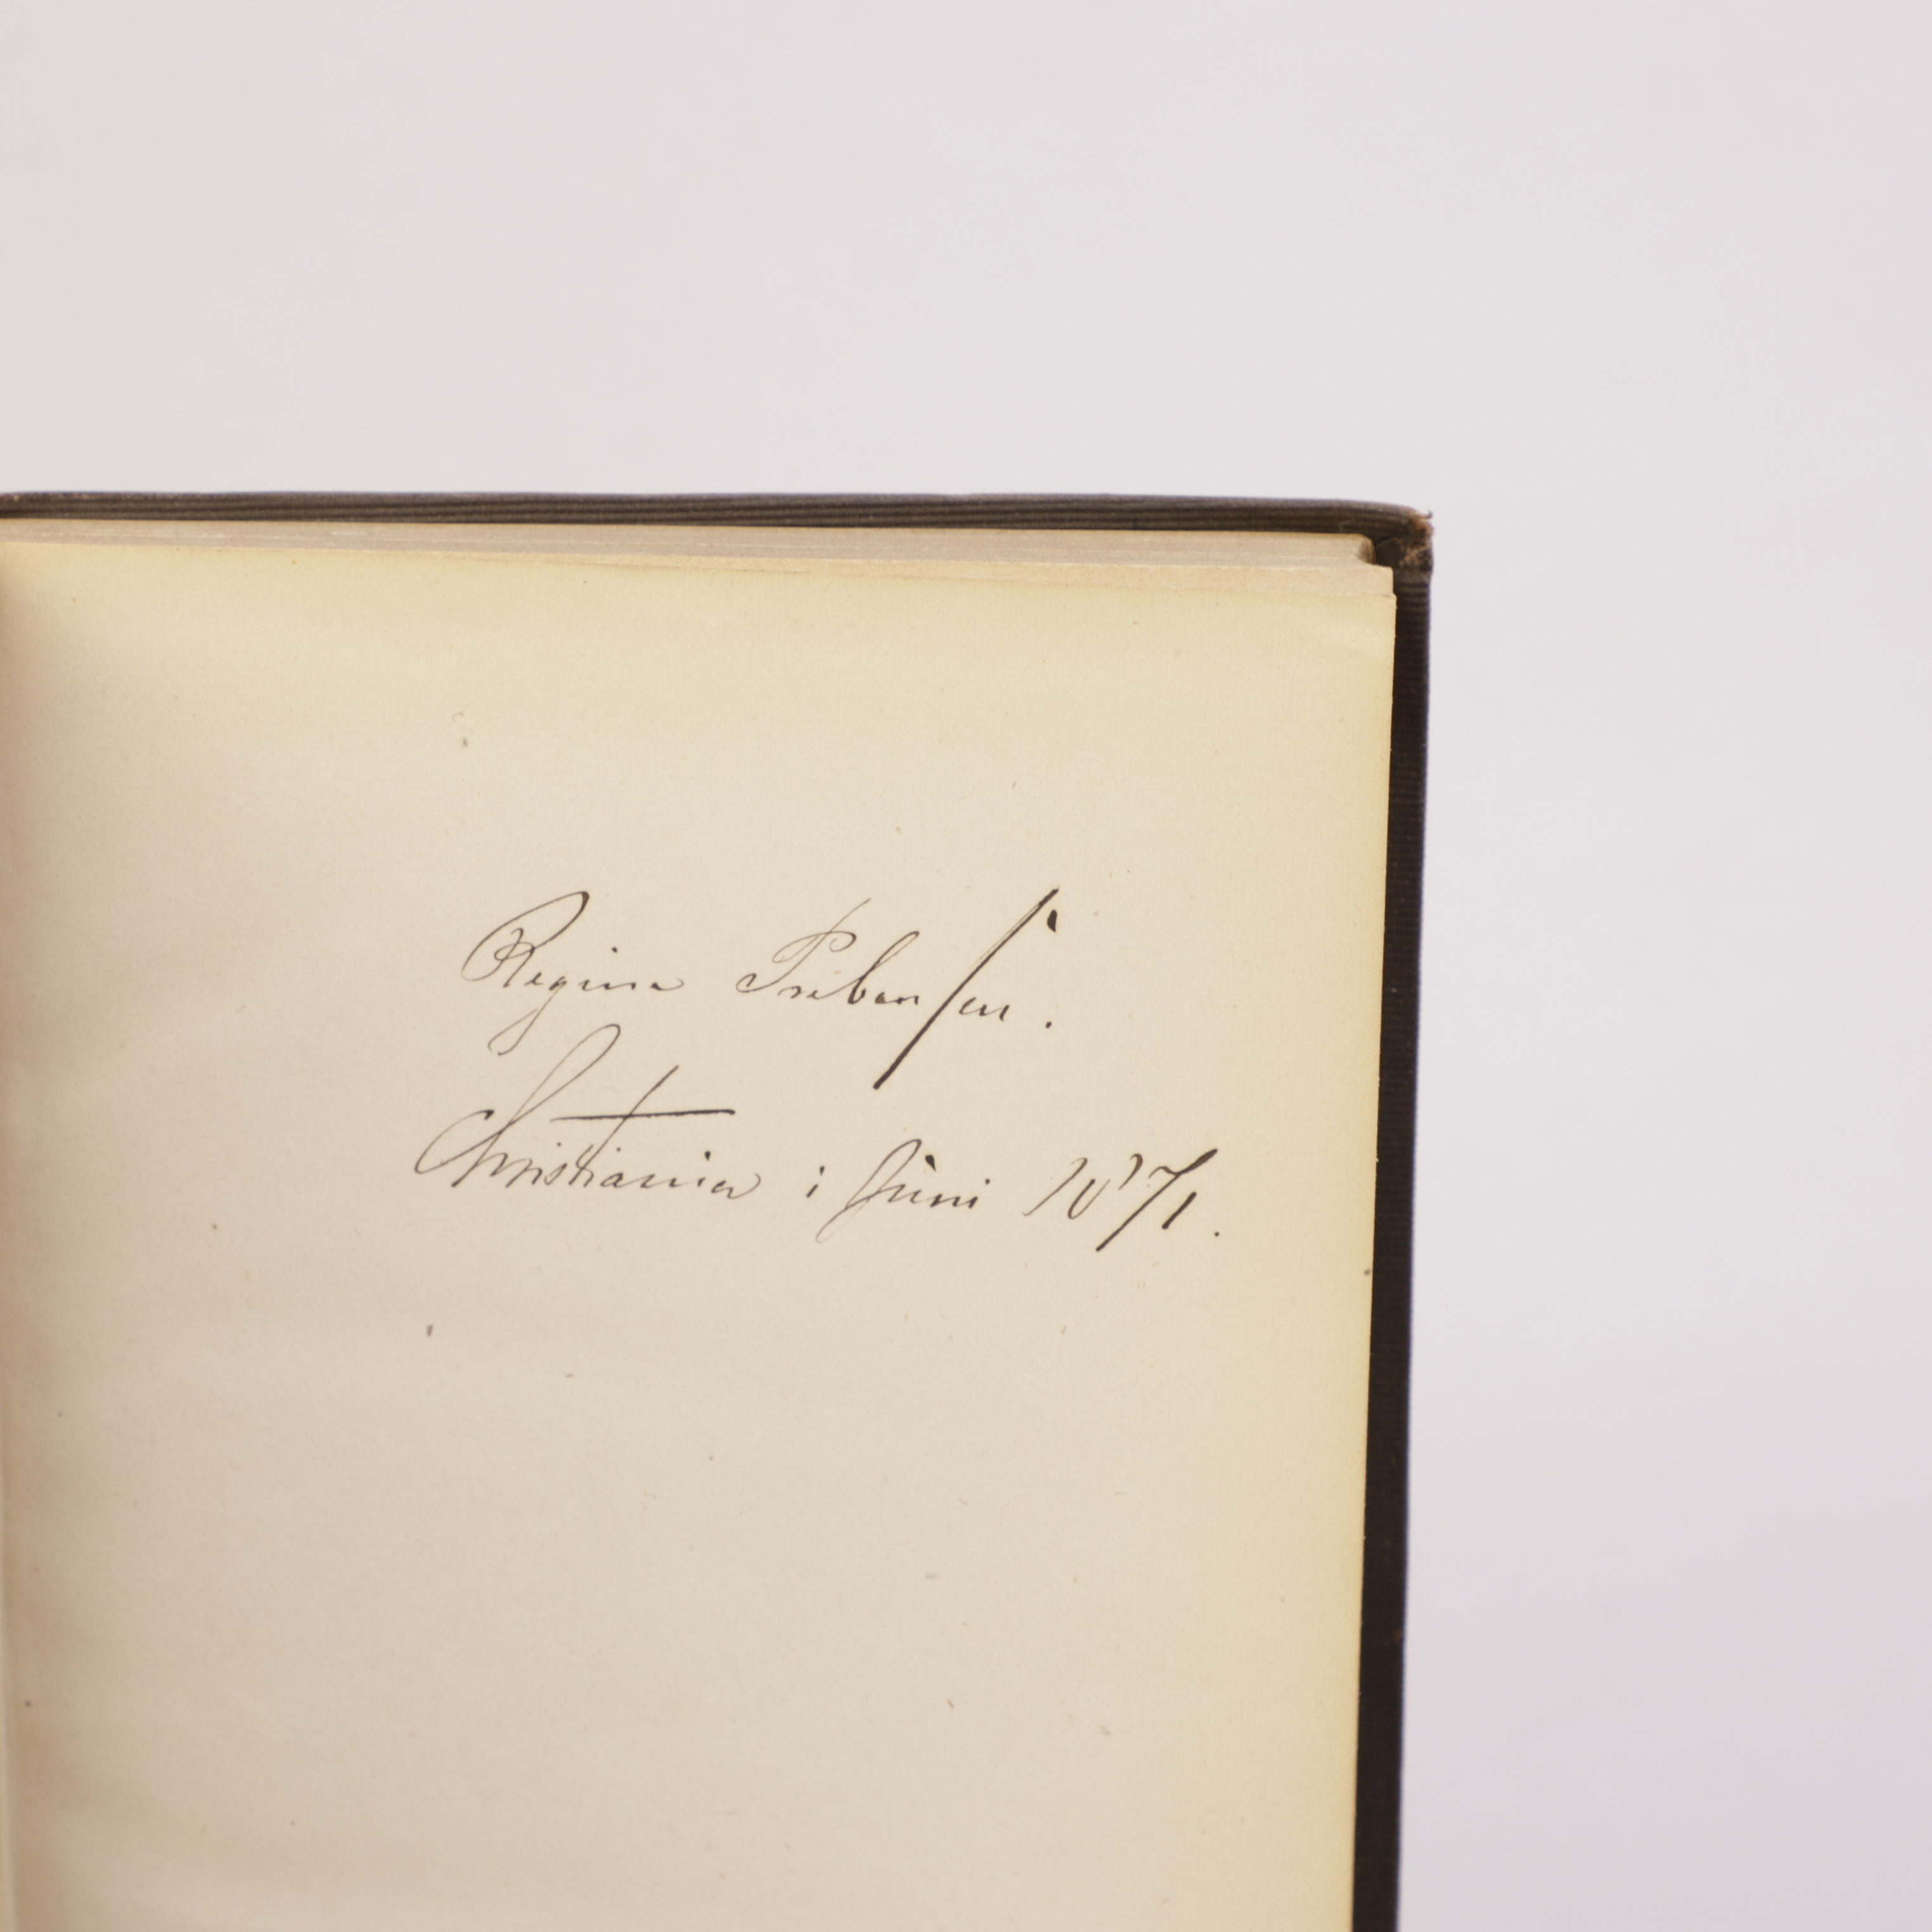 Regine Prebensen.
Christiania i Juni 1871.